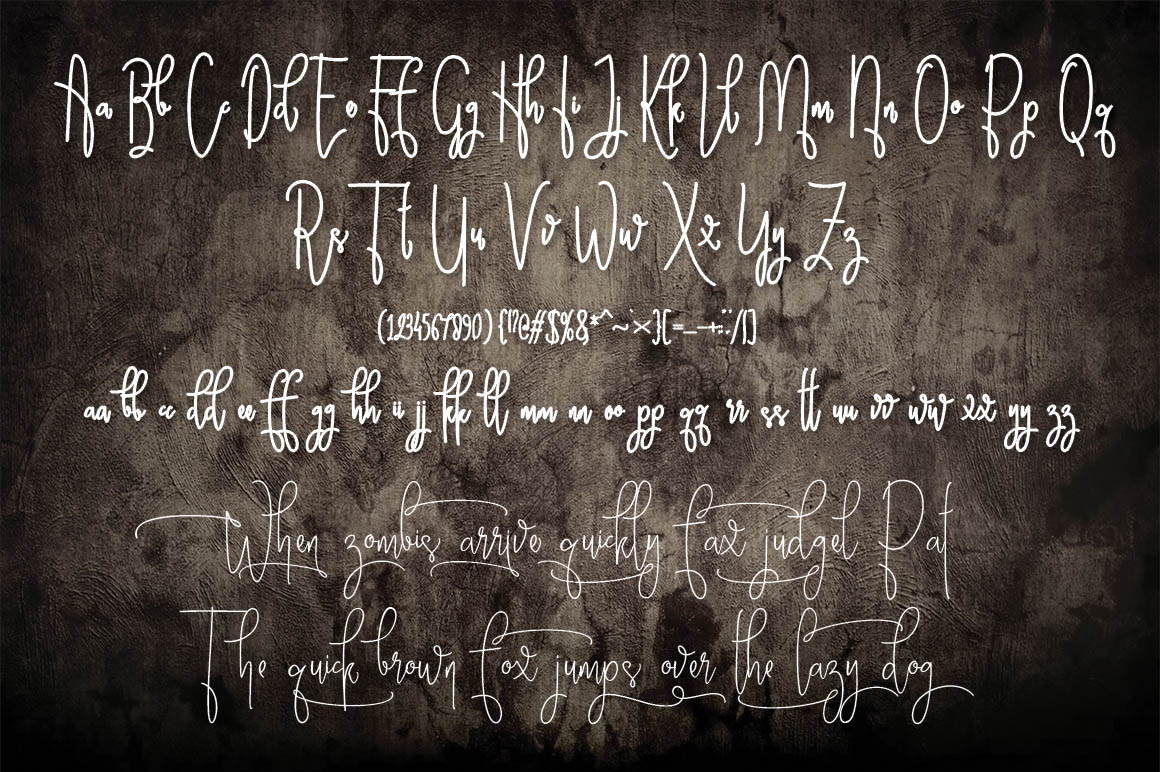 Aa Bb Cc Dd Ee Ff Gg Hh Ii Jj Kk Ll Mm Nn Oo Pp Qq
Rs Tt Uu Vv Ww Xx Yy Zz
(1234567890) {!?@#$%& *^~`×}[=_—+:;/|]
aa bb cc dd ee ff gg hh ii jj kk ll mm nn oo pp qq rr ss tt uu vv ww xx yy zz
When zombis arrive quickly fax judgel Pat
The quick brown fox jumps over the lazy dog